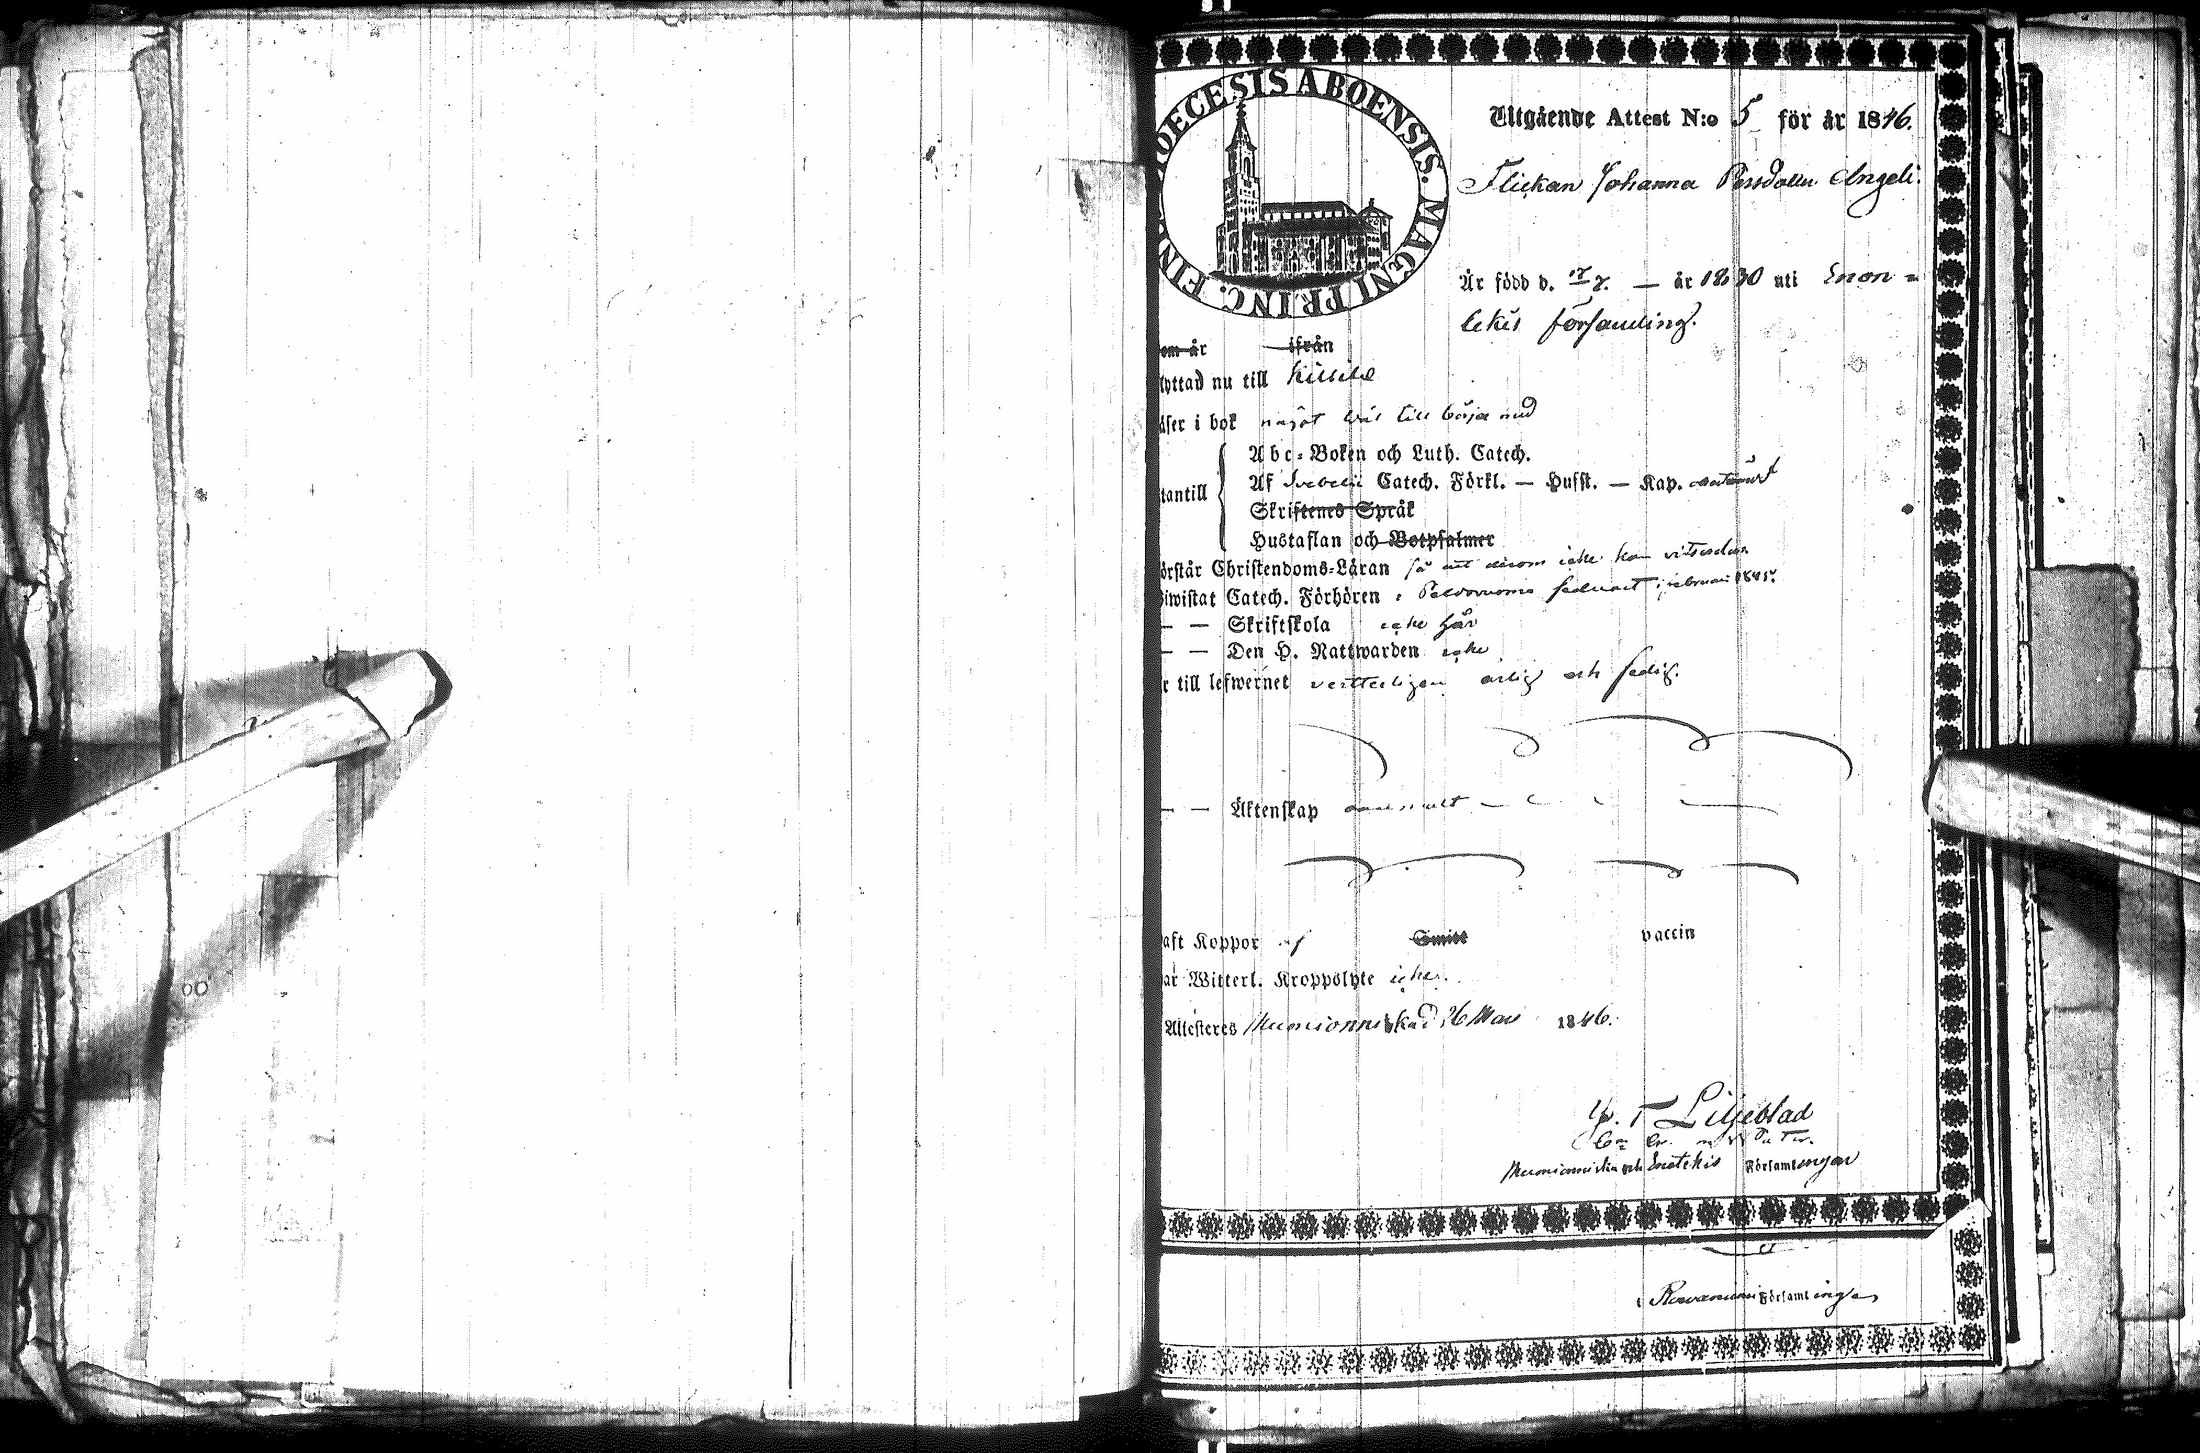 DIOECESIS ABOENSIS. MAGNI PRINC. FIN
Utgående Attest N:o 5 för år 1846.
Flickan Johanna Persdotter Angeli.
Är född d. 17/7. — år 1830 uti Enon=
tekis församling.
om år — ifrån
lyttad nu till Kittilä
äser i bok något wäl till börja med
Abc-Boken och Luth. Catech.
tantill Af Svebelii Catech. Förkl. — Husst. — Kap.
Skriftenes Språk
Hustaflan och Botpsalmer
örstår Christendoms-Läran så att derom icke kan vitsordas
Biwistat Catech. Förhören i sednast i februari 1845.
— — Skriftskola icke här
— — Den H. Nattwarden icke
r till lefwernet vetterligen ärlig och sedig.
— — Äktenskap
aft Koppor af Smitt vaccin
ar Witterl. Kroppslyte icke.
Attesteres Muonionniska d 26 Mars 1846.
Liljeblad
Muonionniska och Enotekis Församlingar
i Rovaniemi Församlingen